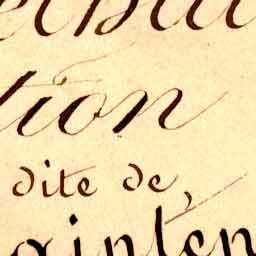 tion
dite de,
ainten